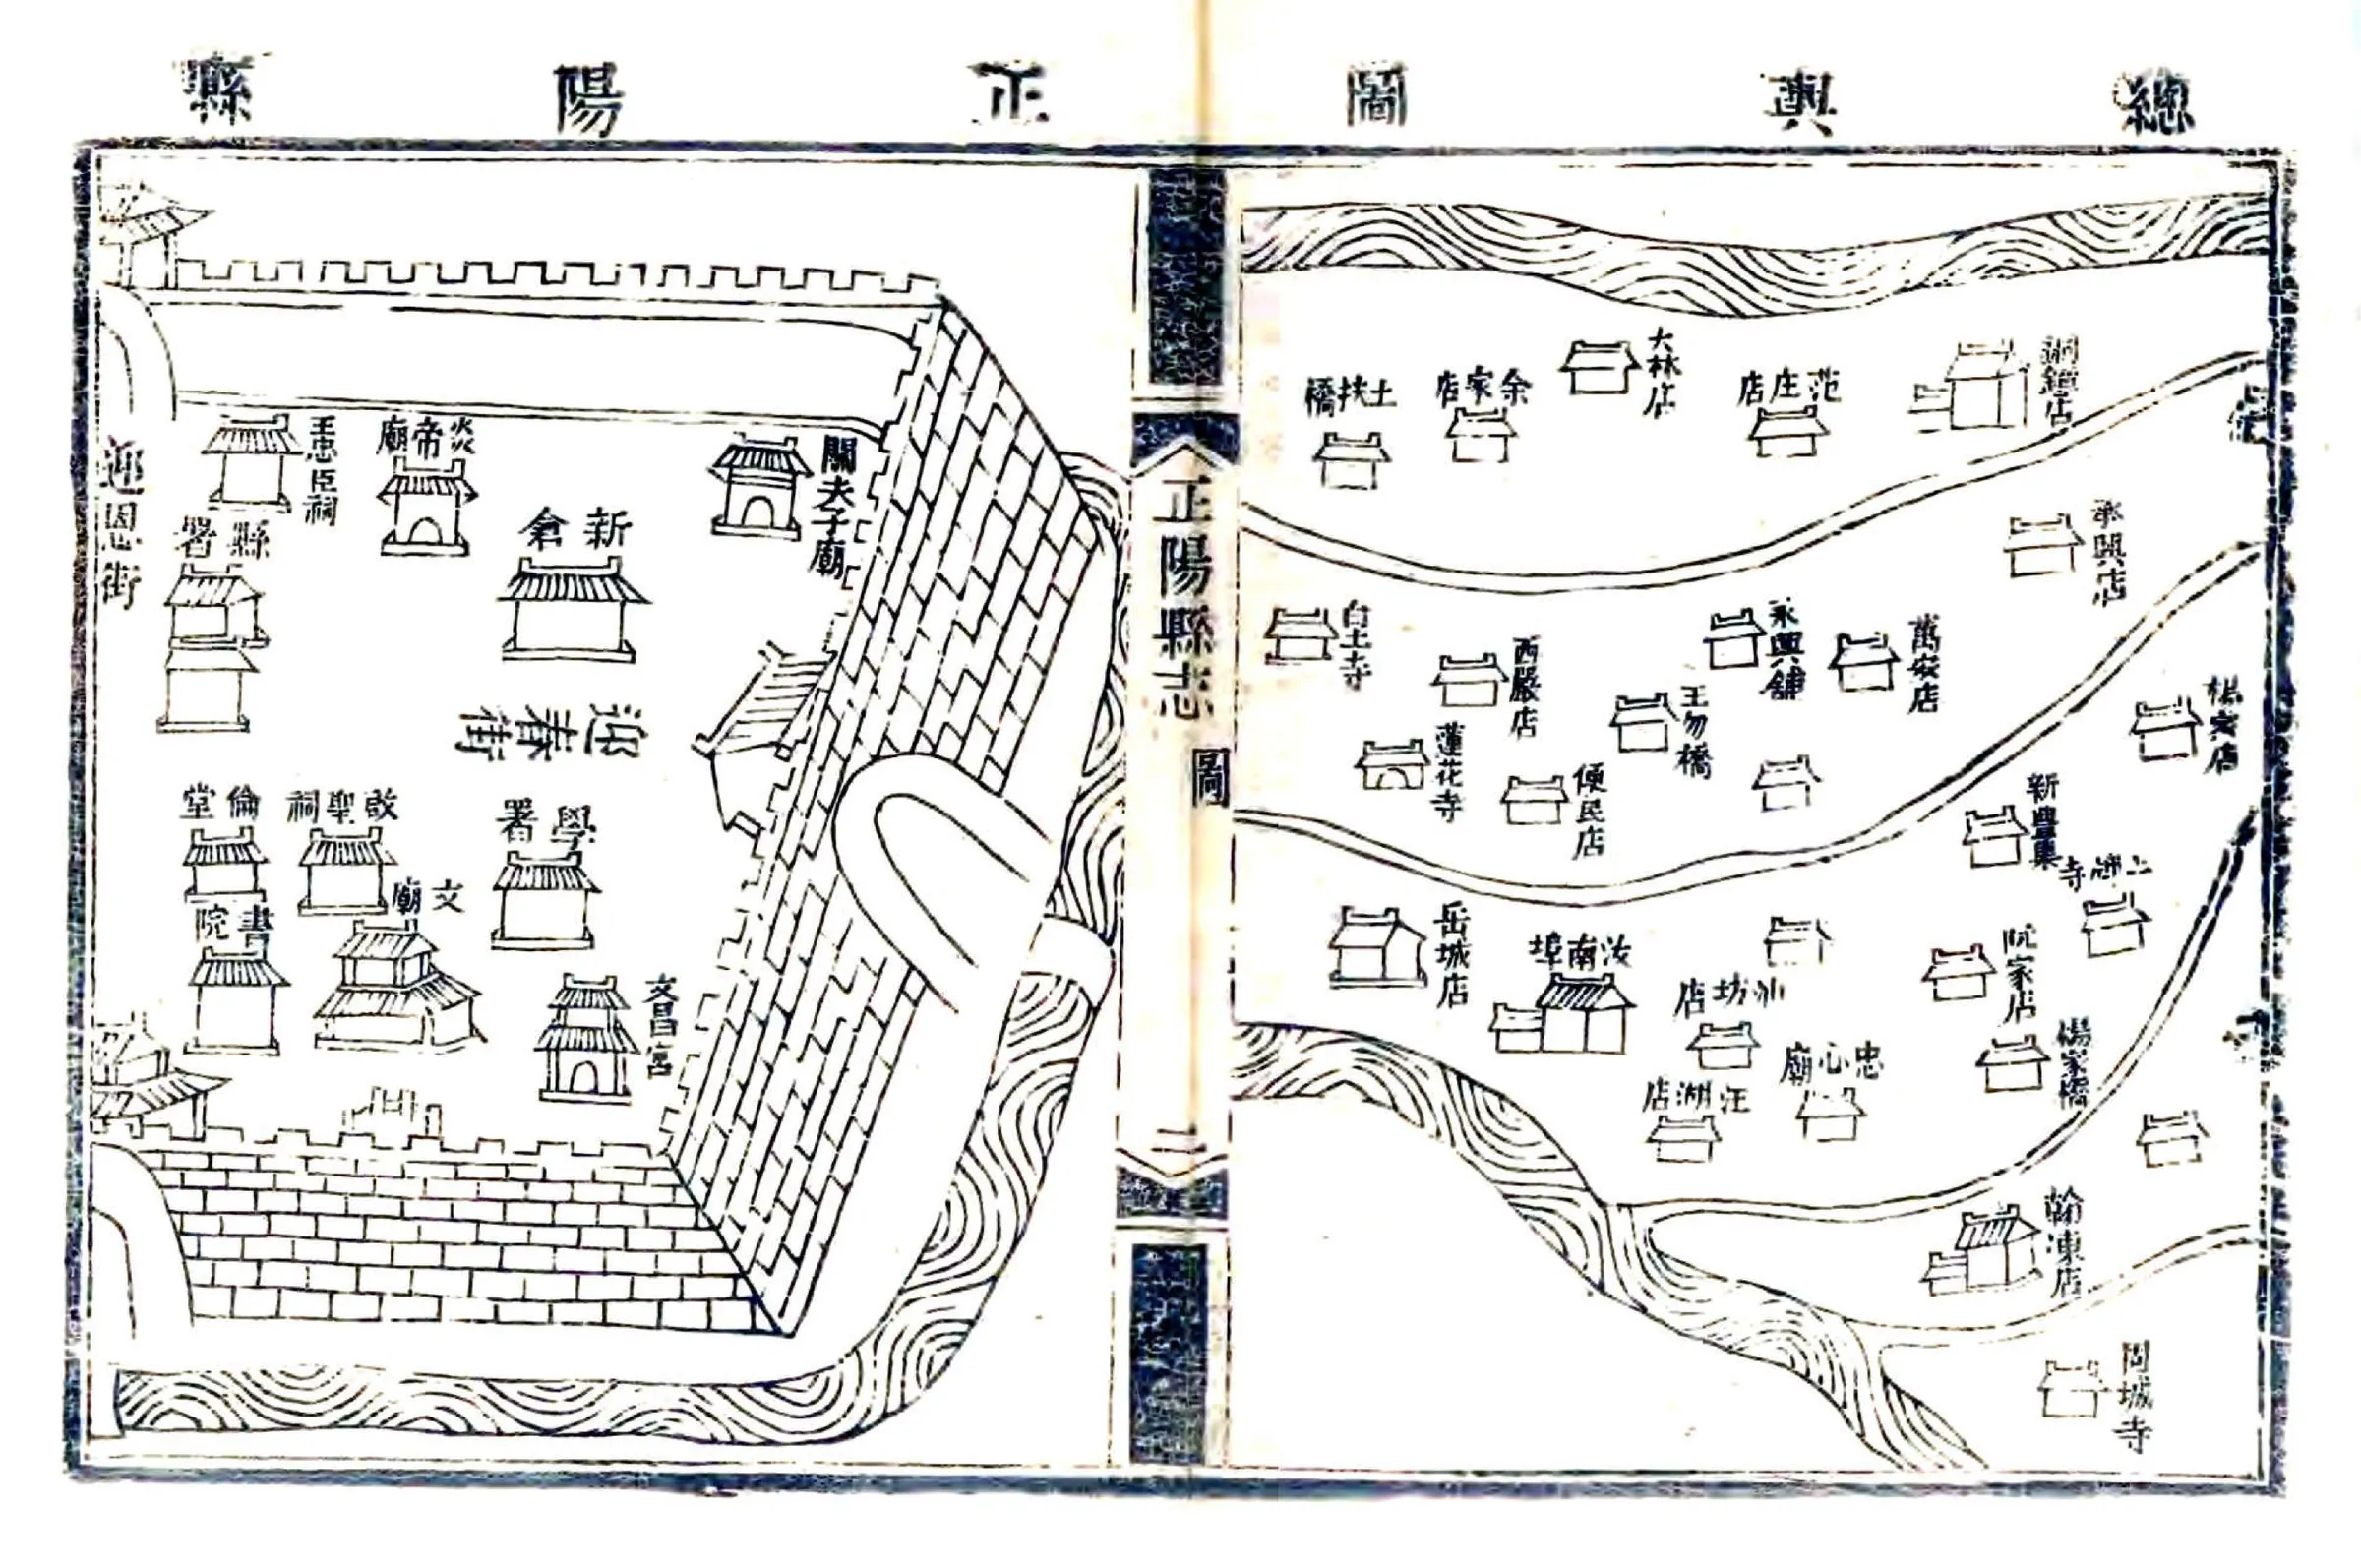 總輿圖
正陽縣
銅鐘店
范庄店
大林店
余家店
土扶橋
永興店
萬安店
永興舖
王勿橋
西嚴店
白土寺
便民店
蓮花寺
新豐集
阮家店
楊家橋
忠心廟
汪湖店
汝南埠
岳城店
同城寺
正陽縣志
圖
二
關夫子廟
新倉
炎帝廟
王忠臣祠
縣署
迎恩街
迎春街
學署
啟聖祠
倫堂
文廟
書院
文昌宮